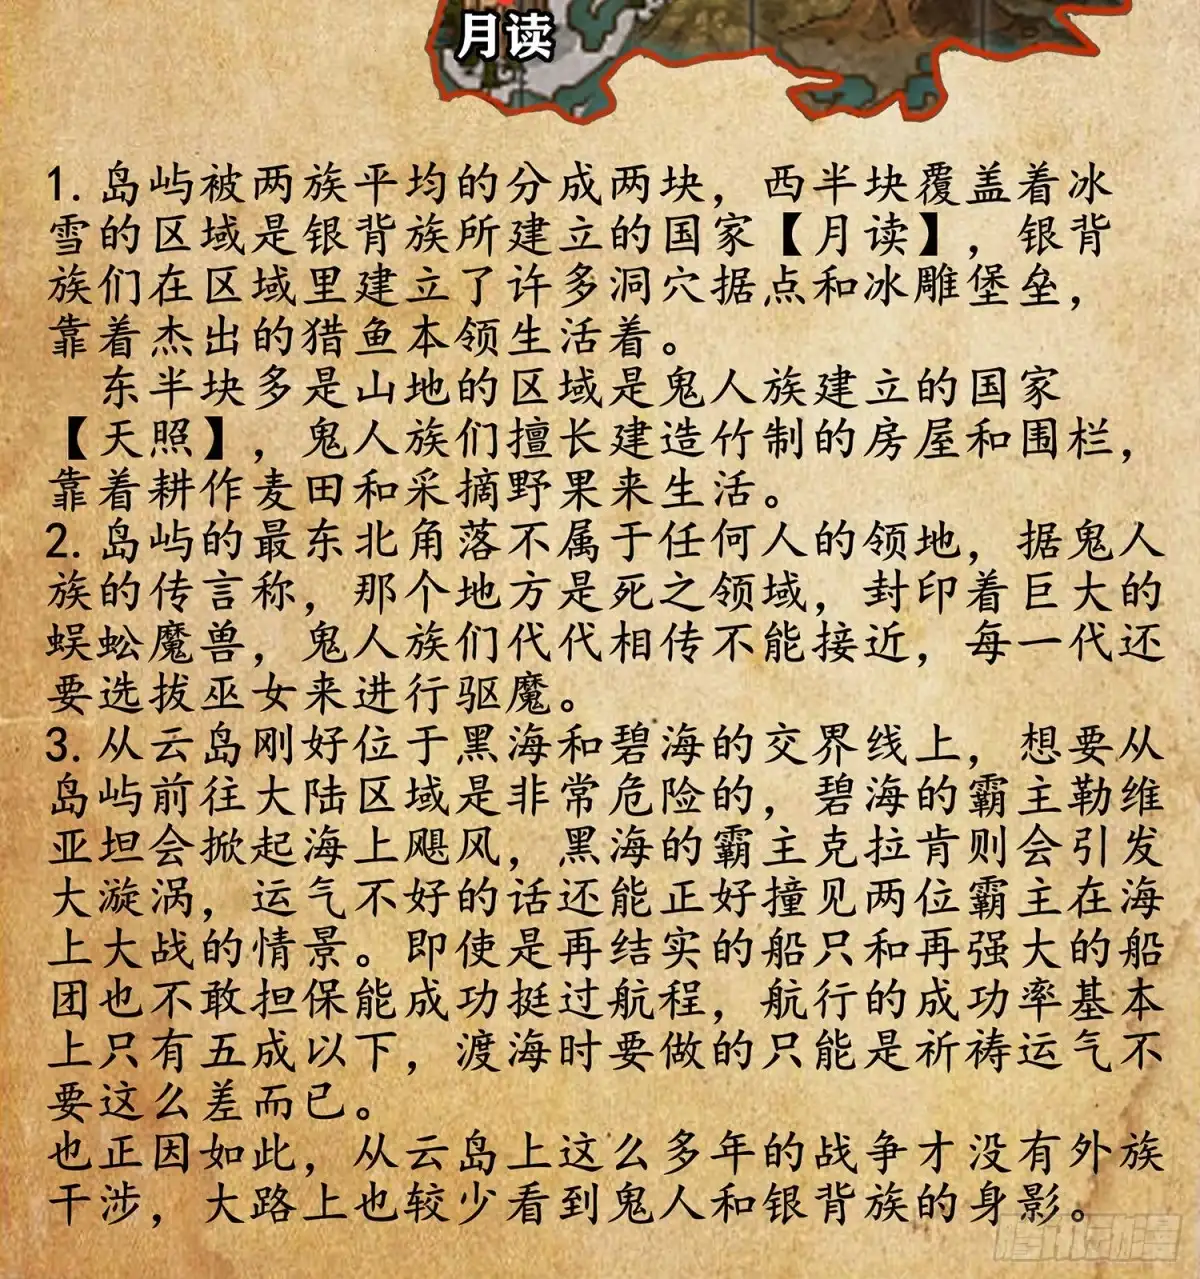 月读
1. 岛屿被两族平均的分成两块，西半块覆盖着冰
雪的区域是银背族所建立的国家【月读】，银背
族们在区域里建立了许多洞穴据点和冰雕堡垒，
靠着杰出的猎鱼本领生活着。
东半块多是山地的区域是鬼人族建立的国家
【天照】，鬼人族们擅长建造竹制的房屋和围栏，
靠着耕作麦田和采摘野果来生活。
2. 岛屿的最东北角落不属于任何人的领地，据鬼人
族的传言称，那个地方是死之领域，封印着巨大的
蜈蚣魔兽，鬼人族们代代相传不能接近，每一代还
要选拔巫女来进行驱魔。
3. 从云岛刚好位于黑海和碧海的交界线上，想要从
岛屿前往大陆区域是非常危险的，碧海的霸主勒维
亚坦会掀起海上飓风，黑海的霸主克拉肯则会引发
大漩涡，运气不好的话还能正好撞见两位霸主在海
上大战的情景。即使是再结实的船只和再强大的船
团也不敢担保能成功挺过航程，航行的成功率基本
上只有五成以下，渡海时要做的只能是祈祷运气不
要这么差而已。
也正因如此，从云岛上这么多年的战争才没有外族
干涉，大路上也较少看到鬼人和银背族的身影。